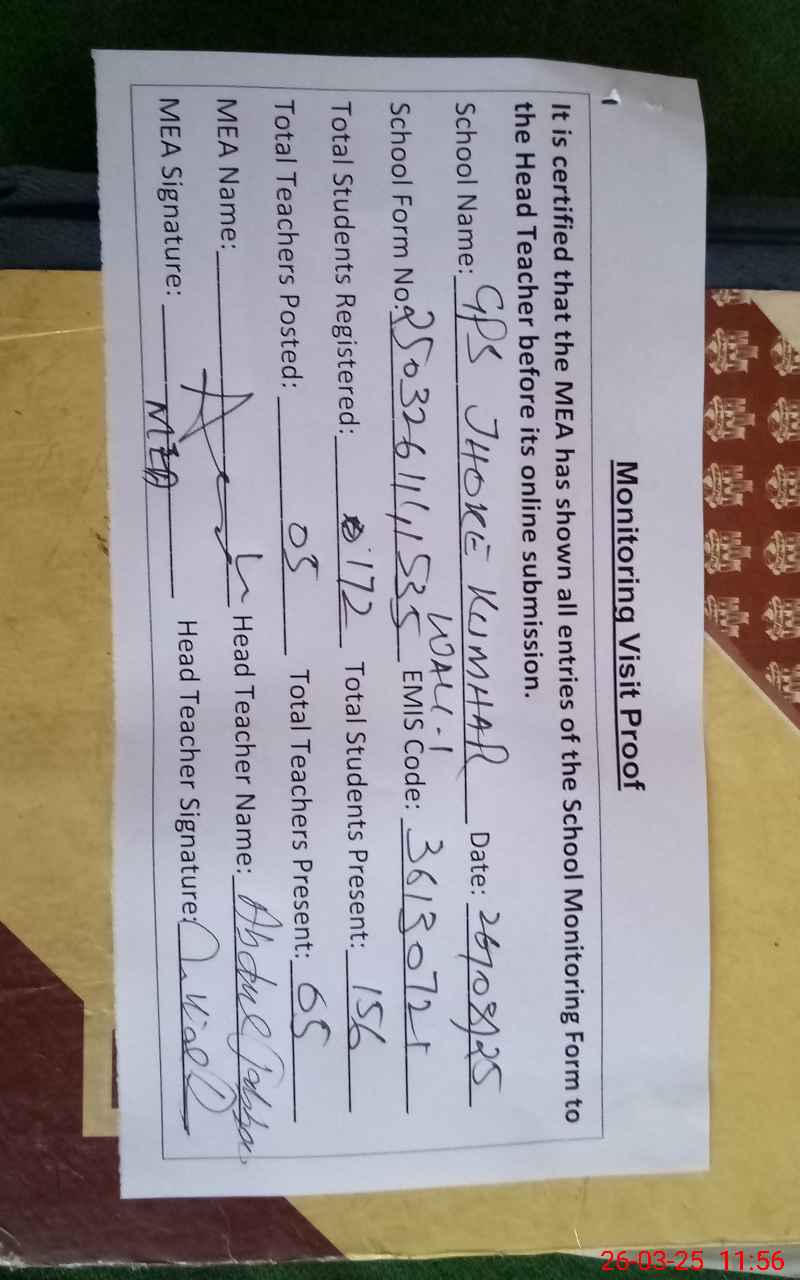 Monitoring Visit Proof
It is certified that the MEA has shown all entries of the School Monitoring Form to
the Head Teacher before its online submission.
School Name: GPS JHOKE KUMHAR Date: 26/03/25
WALI-1
School Form No: EMIS Code: 36130721
Total Students Registered: 172 Total Students Present: 156
Total Teachers Posted: 05 Total Teachers Present: 05
MEA Name: Head Teacher Name: Abdul Jabbar
MEA Signature: MEA Head Teacher Signature:
26-03-25 11:56